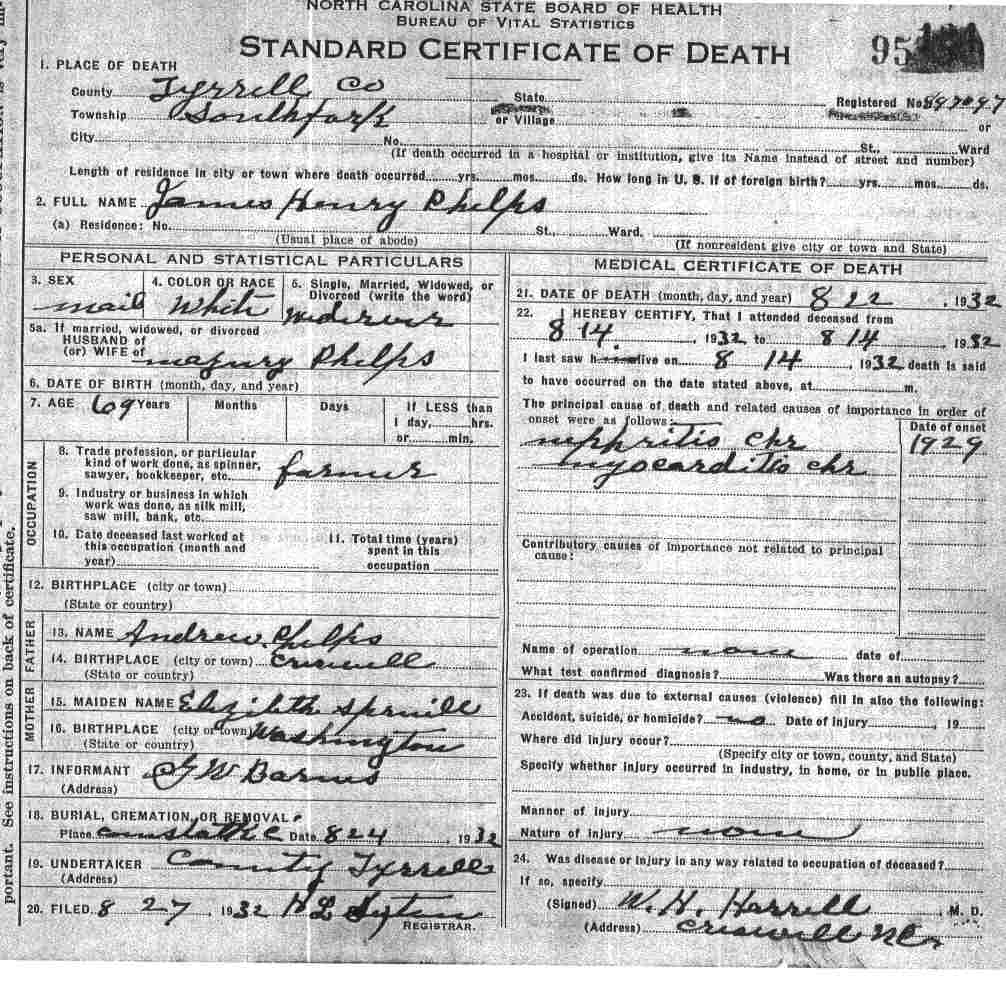 NORTH CAROLINA STATE BOARD OF HEALTH
BUREAU OF VITAL STATISTICS
STANDARD CERTIFICATE OF DEATH
95
1. PLACE OF DEATH
County Tyrrell Co State Registered No.
Township Southfork or Village or
City No. St., Ward
(If death occurred in a hospital or institution, give its Name instead of street and number)
Length of residence in city or town where death occurred yrs. mos. ds. How long in U. S. if of foreign birth? yrs. mos. ds.
2. FULL NAME James Henry Phelps
(a) Residence: No. St., Ward.
(Usual place of abode) (If nonresident give city or town and State)
PERSONAL AND STATISTICAL PARTICULARS
3. SEX 4. COLOR OR RACE 5. Single, Married, Widowed, or
Divorced (write the word)
mail White
5a. If married, widowed, or divorced
HUSBAND of
(or) WIFE of Phelps
6. DATE OF BIRTH (month, day, and year)
7. AGE 69 Years Months Days If LESS than
1 day, hrs.
or min.
OCCUPATION
8. Trade profession, or particular
kind of work done, as spinner,
sawyer, bookkeeper, etc. farmer
9. Industry or business in which
work was done, as silk mill,
saw mill, bank, etc.
10. Date deceased last worked at
this occupation (month and
year)
11. Total time (years)
spent in this
occupation
12. BIRTHPLACE (city or town)
(State or country)
FATHER
13. NAME Andrew Phelps
14. BIRTHPLACE (city or town) Criswell
(State or country)
MOTHER
15. MAIDEN NAME Spruill
16. BIRTHPLACE (city or town) Washington
(State or country)
17. INFORMANT G W Barnes
(Address)
18. BURIAL, CREMATION, OR REMOVAL
Place Date 8 24, 1932
19. UNDERTAKER County Tyrrell
(Address)
20. FILED 8 27, 1932 H L
REGISTRAR.
MEDICAL CERTIFICATE OF DEATH
21. DATE OF DEATH (month, day, and year) 8 22, 1932
22. I HEREBY CERTIFY, That I attended deceased from
8 14, 1932 to 8 14 1932
I last saw h alive on 8 14, 1932 death is said
to have occurred on the date stated above, at m.
The principal cause of death and related causes of importance in order of
onset were as follows: Date of onset
nephritis chr 1929
myocarditis chr
Contributory causes of importance not related to principal
cause:
Name of operation none date of
What test confirmed diagnosis? Was there an autopsy?
23. If death was due to external causes (violence) fill in also the following:
Accident, suicide, or homicide? no Date of injury, 19
Where did injury occur?
(Specify city or town, county, and State)
Specify whether injury occurred in industry, in home, or in public place.
Manner of injury
Nature of injury none
24. Was disease or injury in any way related to occupation of deceased?
If so, specify
(Signed) W. H. Harrell, M. D.
(Address) Criswell NC.
portant. See instructions on back of certificate.